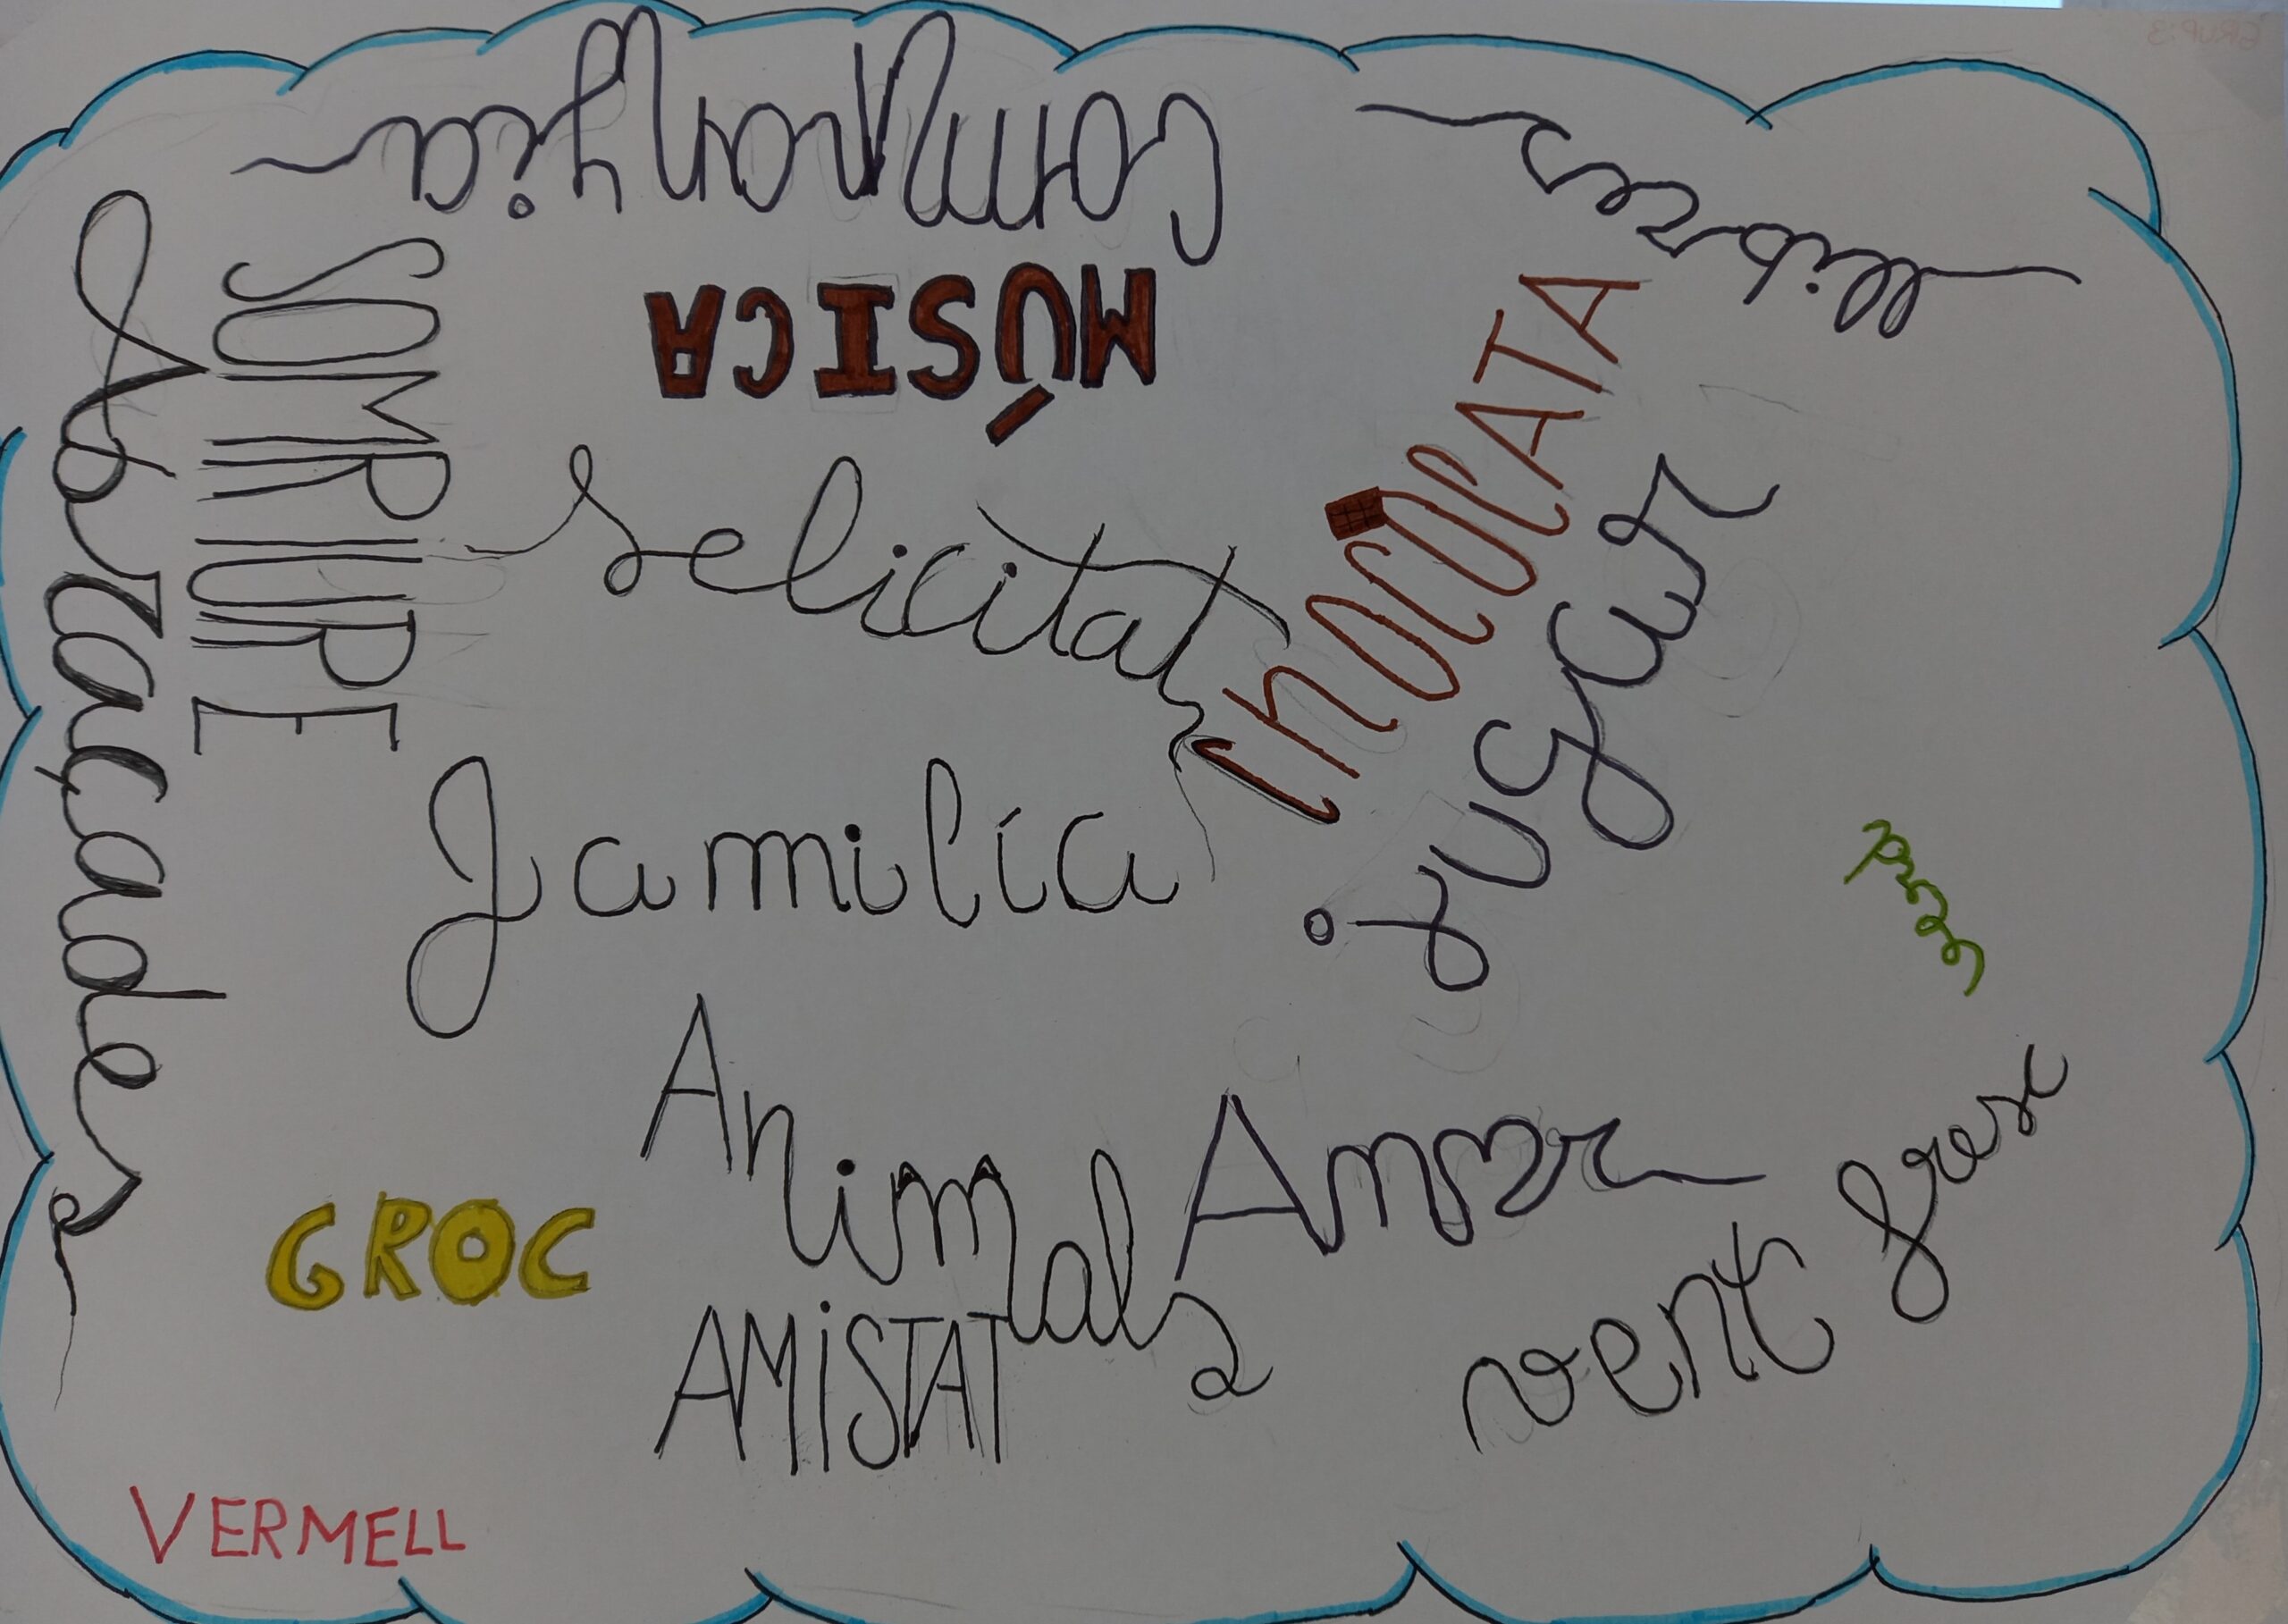 Companyia
llibres
MÚSICA
SOMRIURE
Abraçades
felicitat
XOCOLATA
jugar
família
verd
Animals
Amor
vent fresc
GROC
AMiSTAT
VERMELL
GRUP:3